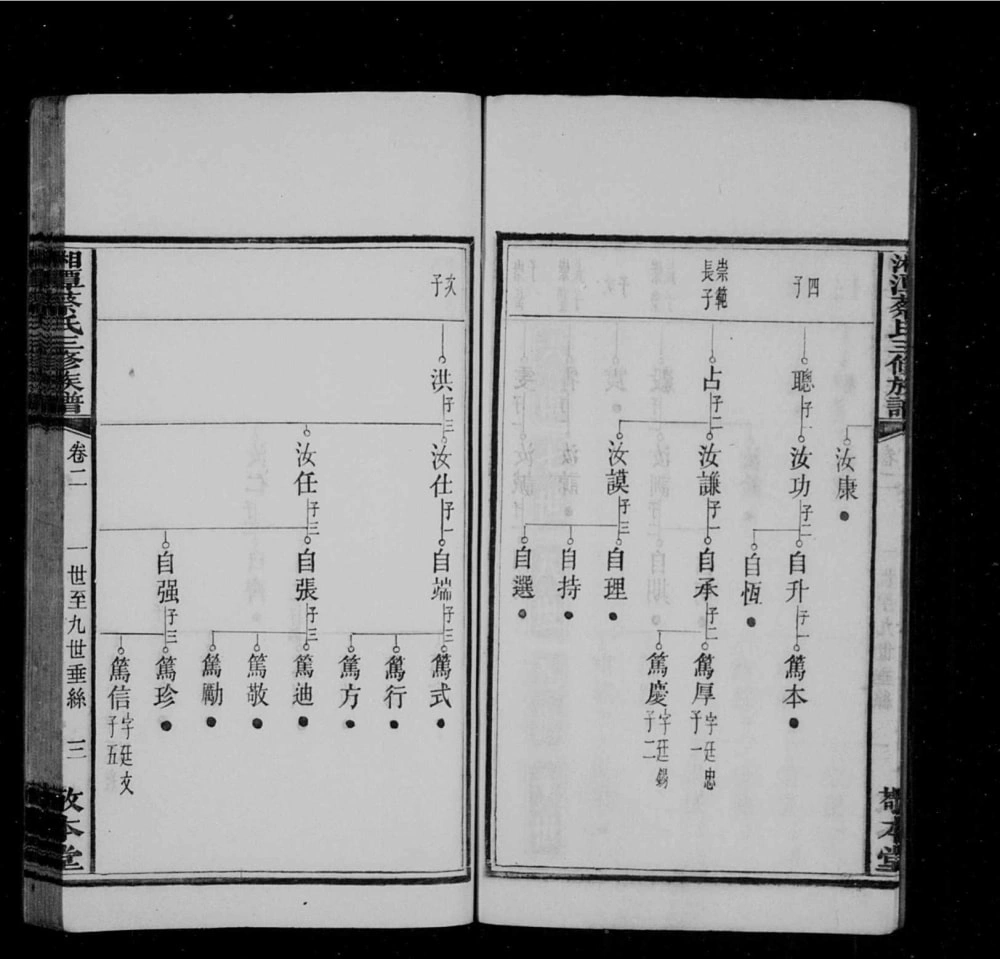 湘潭蔡氏三修族譜
敦本堂
四子
聰子一
汝康
汝功子二
自升子一
自恆
篤本
崇範長子
占子二
汝謙子一
汝謨子三
自承子二
自理
自持
自選
篤厚字廷忠子一
篤慶字廷錫子二
次子
洪子三
汝仕子一
汝任子三
自端子三
自張子三
自强子三
篤式
篤行
篤方
篤迪
篤敬
篤勵
篤珍
篤信字廷文子五
湘潭蔡氏三修族譜
卷二
一世至九世垂絲
三
敦本堂